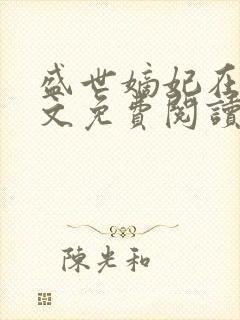 盛世嫡妃在
文免費閱讀
陳光和